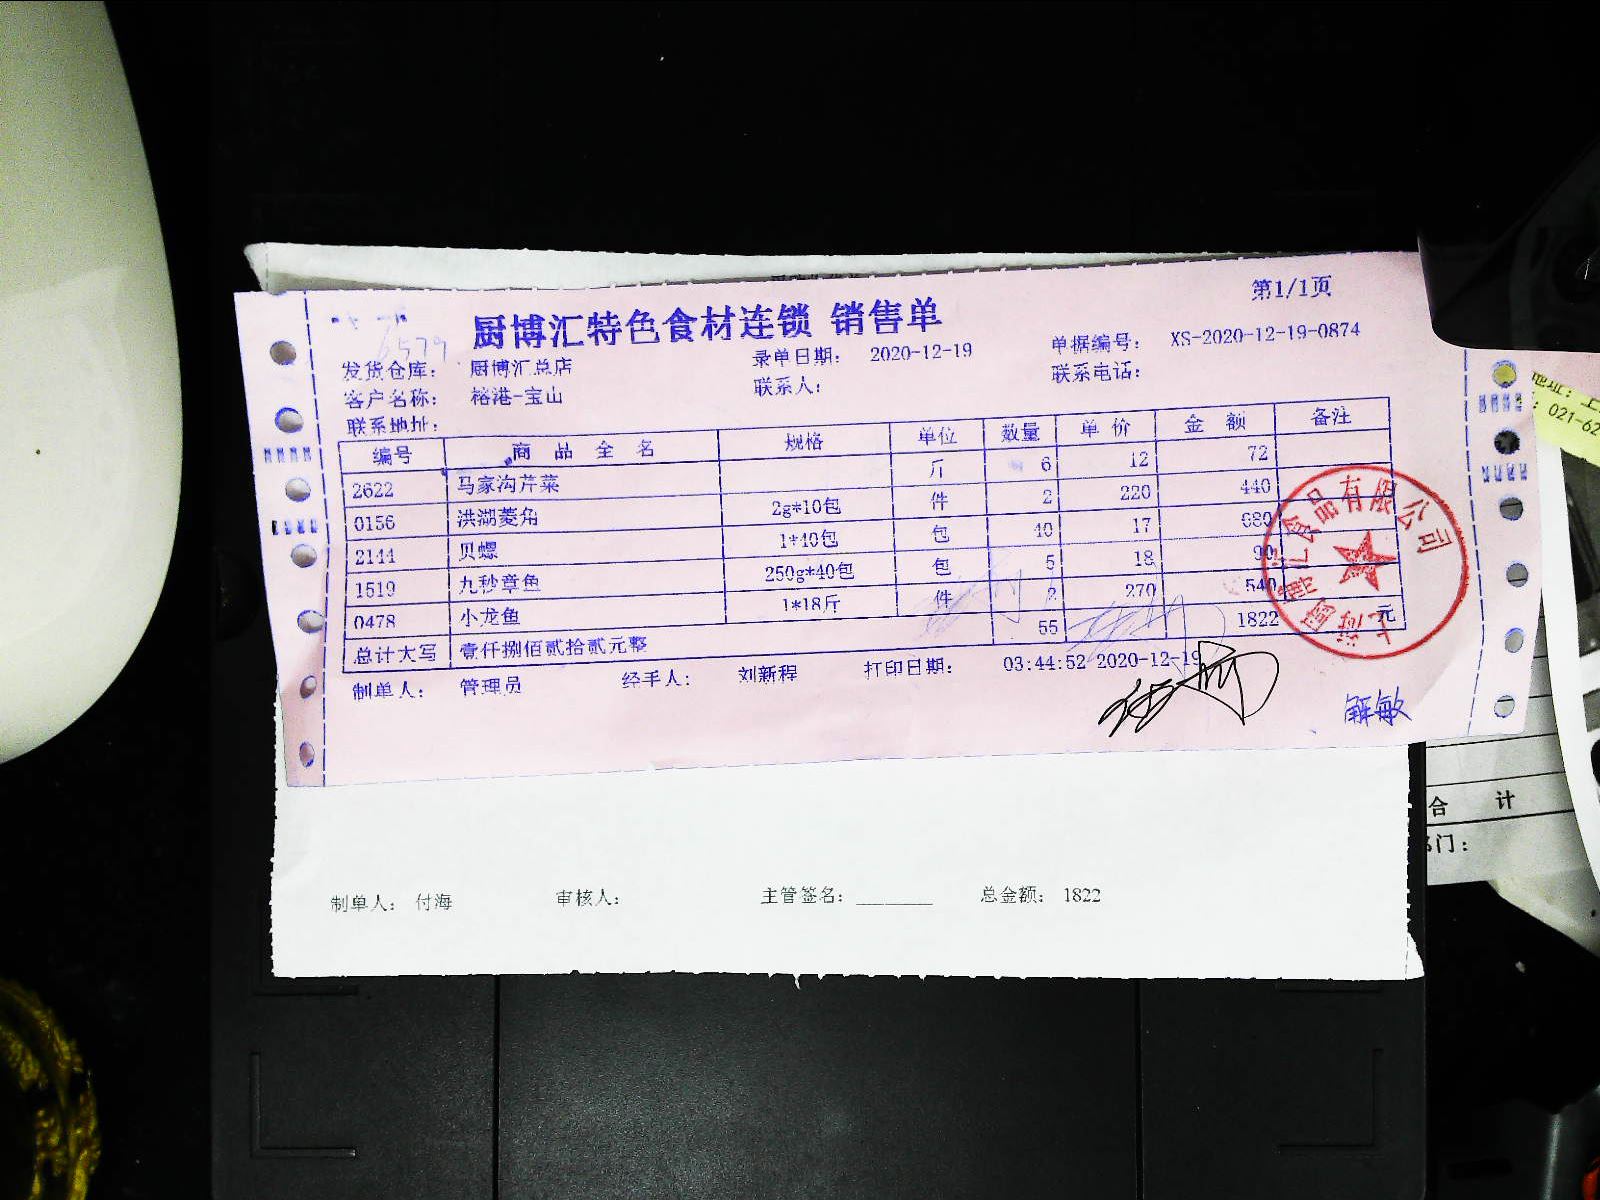 第1/1页
厨博汇特色食材连锁 销售单
6579
发货仓库： 厨博汇总店 录单日期： 2020-12-19 单据编号： XS-2020-12-19-0874
客户名称： 榕港-宝山 联系人： 联系电话：
联系地址：
编号 商 品 全 名 规格 单位 数量 单 价 金 额 备注
2622 马家沟芹菜 斤 6 12 72
0156 洪湖菱角 2g*10包 件 2 220 440
2144 贝螺 1*40包 包 40 17 680
1519 九秒章鱼 250g*40包 包 5 18 90
0478 小龙鱼 1*18斤 件 2 270 540
总计大写 壹仟捌佰贰拾贰元整 55 1822 元
制单人： 管理员 经手人： 刘新程 打印日期： 03:44:52 2020-12-19
解敏
上海厨博汇食品有限公司
地址：上
：021-62
合 计
部门：
制单人： 付海 审核人： 主管签名： 总金额： 1822